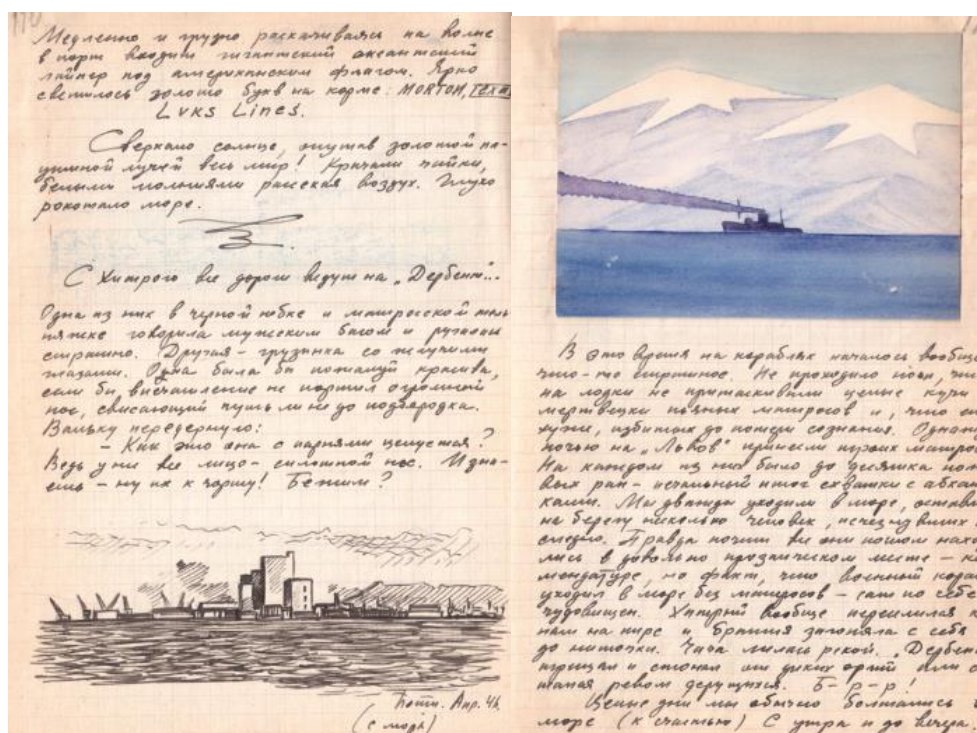 170
Медленно и грузно раскачиваясь на волне
в порт входит гигантский океанский
лайнер под американским флагом. Ярко
светилось золото букв на корме: MORTON, TEXAS
Lvks Lines.
Сверкало солнце, опутав золотой па-
утиной лучей весь мир! Кричали чайки,
белыми молниями рассекая воздух. Глухо
рокотало море.
С Хитрого все дороги ведут на „Дербент"...
Одна из них в черной юбке и матросской тель
няжке говорила мужским басом и ругалась
страшно. Другая - грузинка со жгучими
глазами. Одна была бы пожалуй красива,
если бы впечатление не портил огромный
нос, свисающий чуть ли не до подбородка.
Ваньку передернуло:
- Как это она с парнями целуется?
Ведь у ней все лицо - сплошной нос. И зна-
ешь - ну их к чорту! Бежим?
Поти. Апр. 46
(с моря)
В это время на кораблях началось вообще
что-то страшное. Не проходило ночи, что
на лодки не притаскивали целые кучи
мертвецки пьяных матросов и, что
хуже, избитых до потери сознания. Однажды
ночью на „Львов" принесли троих матросов
На каждом из них было до десятка ноже
вых ран - печальный итог схватки с абхаз
ками. Мы дважды уходили в море, оставив
на берегу несколько человек, исчезнувших
следно. Правда почти все они потом нахо
лись в довольно прозаическом месте - ко
мендатуре, но факт, что военный кораб
уходил в море без матросов - сам по себе
чудовищен. Хитрый вообще переселился к
нам на пирс и братия загоняла с себя
до ниточки. Чача лилась рекой. „Дербент
трещал и стонал от диких оргий или
ревом дерущихся. Б-р-р!
Целые дни мы обычно болтались в
море (к счастью) С утра и до вечера.